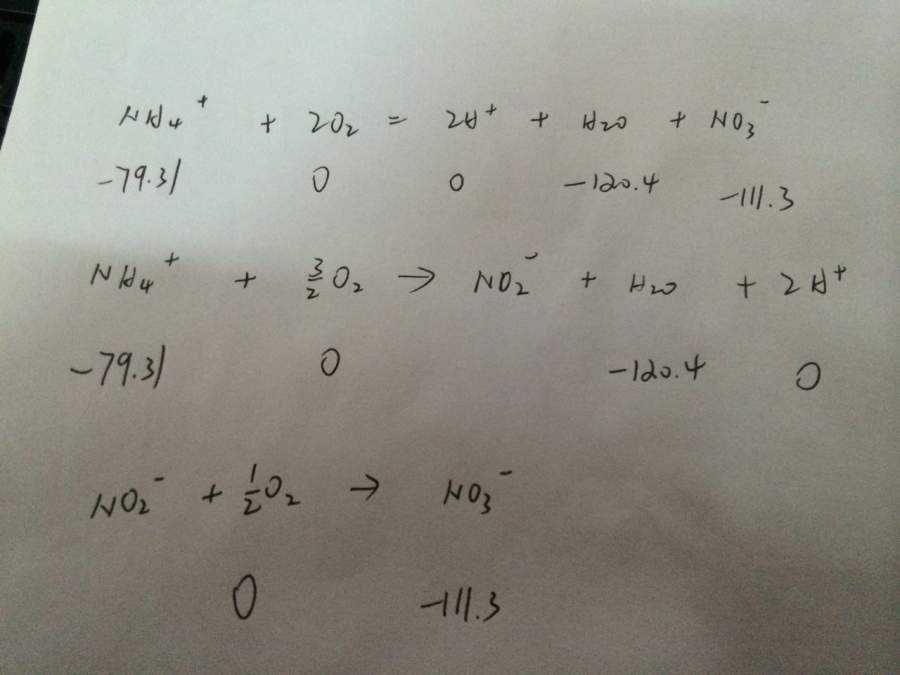 NH₄⁺ + 2O₂ = 2H⁺ + H₂O + NO₃⁻
-79.31 0 0 -120.4 -111.3
NH₄⁺ + 3/2 O₂ → NO₂⁻ + H₂O + 2H⁺
-79.31 0 -120.4 0
NO₂⁻ + 1/2 O₂ → NO₃⁻
0 -111.3